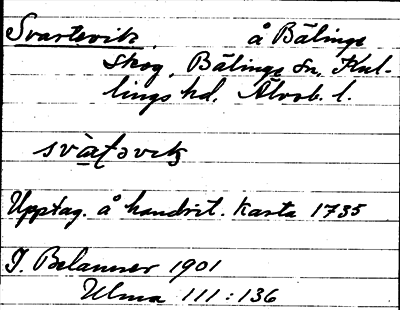 Svartevik, å Bälinge
skog, Bälinge sn, Kul-
lings hd, Älvsb. l.
svàʈəvik
Upptag. å handrit. karta 1735
J. Belanner 1901
Ulma 111:136